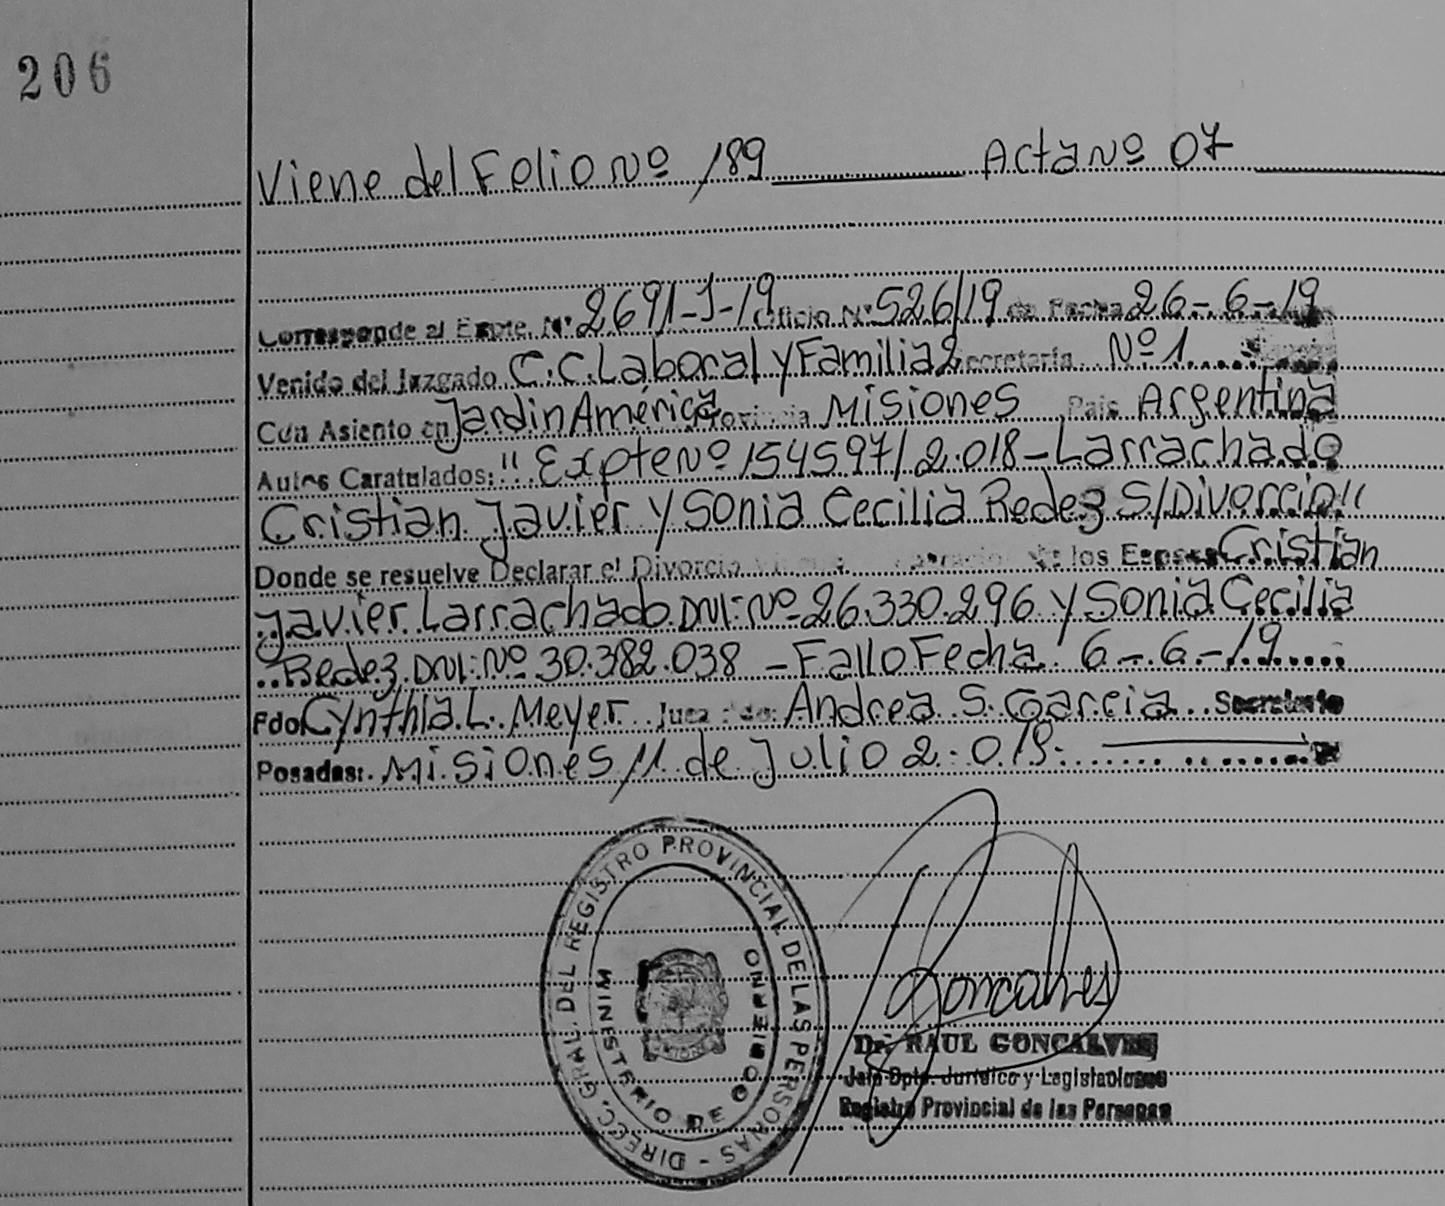 206
Viene del Folio Nº 189 Acta Nº 07
Corresponde al Expte. Nº 2691-J-19 Oficio Nº 526/19 de Fecha 26-6-19
Venido del Juzgado C.C. Laboral y Familia Secretaría Nº 1
Con Asiento en Jardin América Provincia Misiones País Argentina
Autos Caratulados: "Expte Nº 154597/2.018 - Larrachado
Cristian Javier y Sonia Cecilia Redez S/Divorcio"
Donde se resuelve Declarar el Divorcio de los Esposos Cristian
Javier Larrachado DNI: Nº 26.330.296 y Sonia Cecilia
Redez DNI: Nº 30.382.038 - Fallo Fecha 6-6-19
Fdo Cynthia L. Meyer Juez Andrea S. Garcia Secretario
Posadas: Misiones 11 de Julio 2.019
DIREC. GRAL. DEL REGISTRO PROVINCIAL DE LAS PERSONAS -
MINISTERIO DE GOBIERNO
Goncalves
Dr. RAUL GONCALVES
Jefe Dpto. Jurídico y Legislaciones
Registro Provincial de las Personas